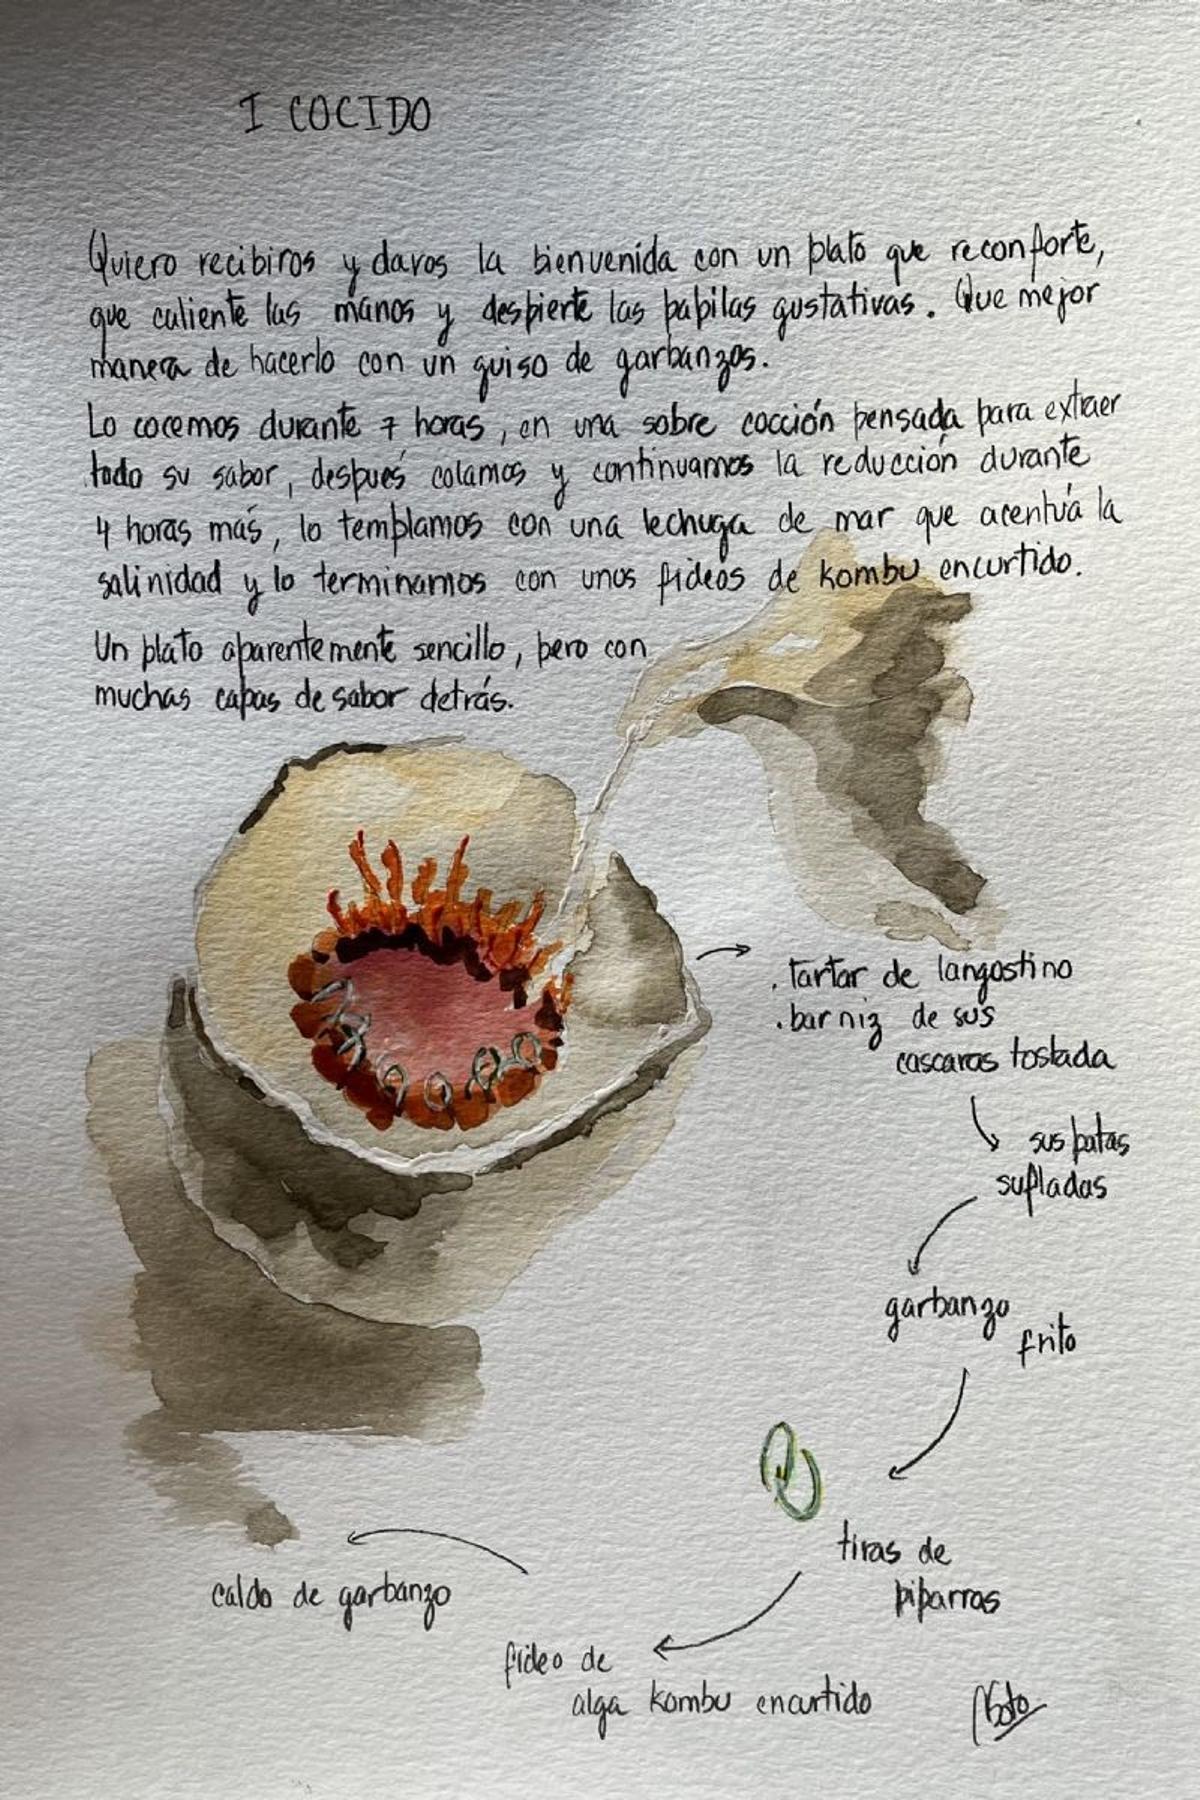 I COCIDO
Quiero recibiros y daros la bienvenida con un plato que reconforte,
que caliente las manos y despierte las papilas gustativas. Que mejor
manera de hacerlo con un guiso de garbanzos.
Lo cocemos durante 7 horas, en una sobre cocción pensada para extraer
todo su sabor, después colamos y continuamos la reducción durante
4 horas más, lo templamos con una lechuga de mar que acentúa la
salinidad y lo terminamos con unos fideos de kombu encurtido.
Un plato aparentemente sencillo, pero con
muchas capas de sabor detrás.
. tartar de langostino
. barniz de sus
cascaras tostada
sus patas
sufladas
garbanzo
frito
tiras de
piparras
fideo de
alga kombu encurtido
caldo de garbanzo